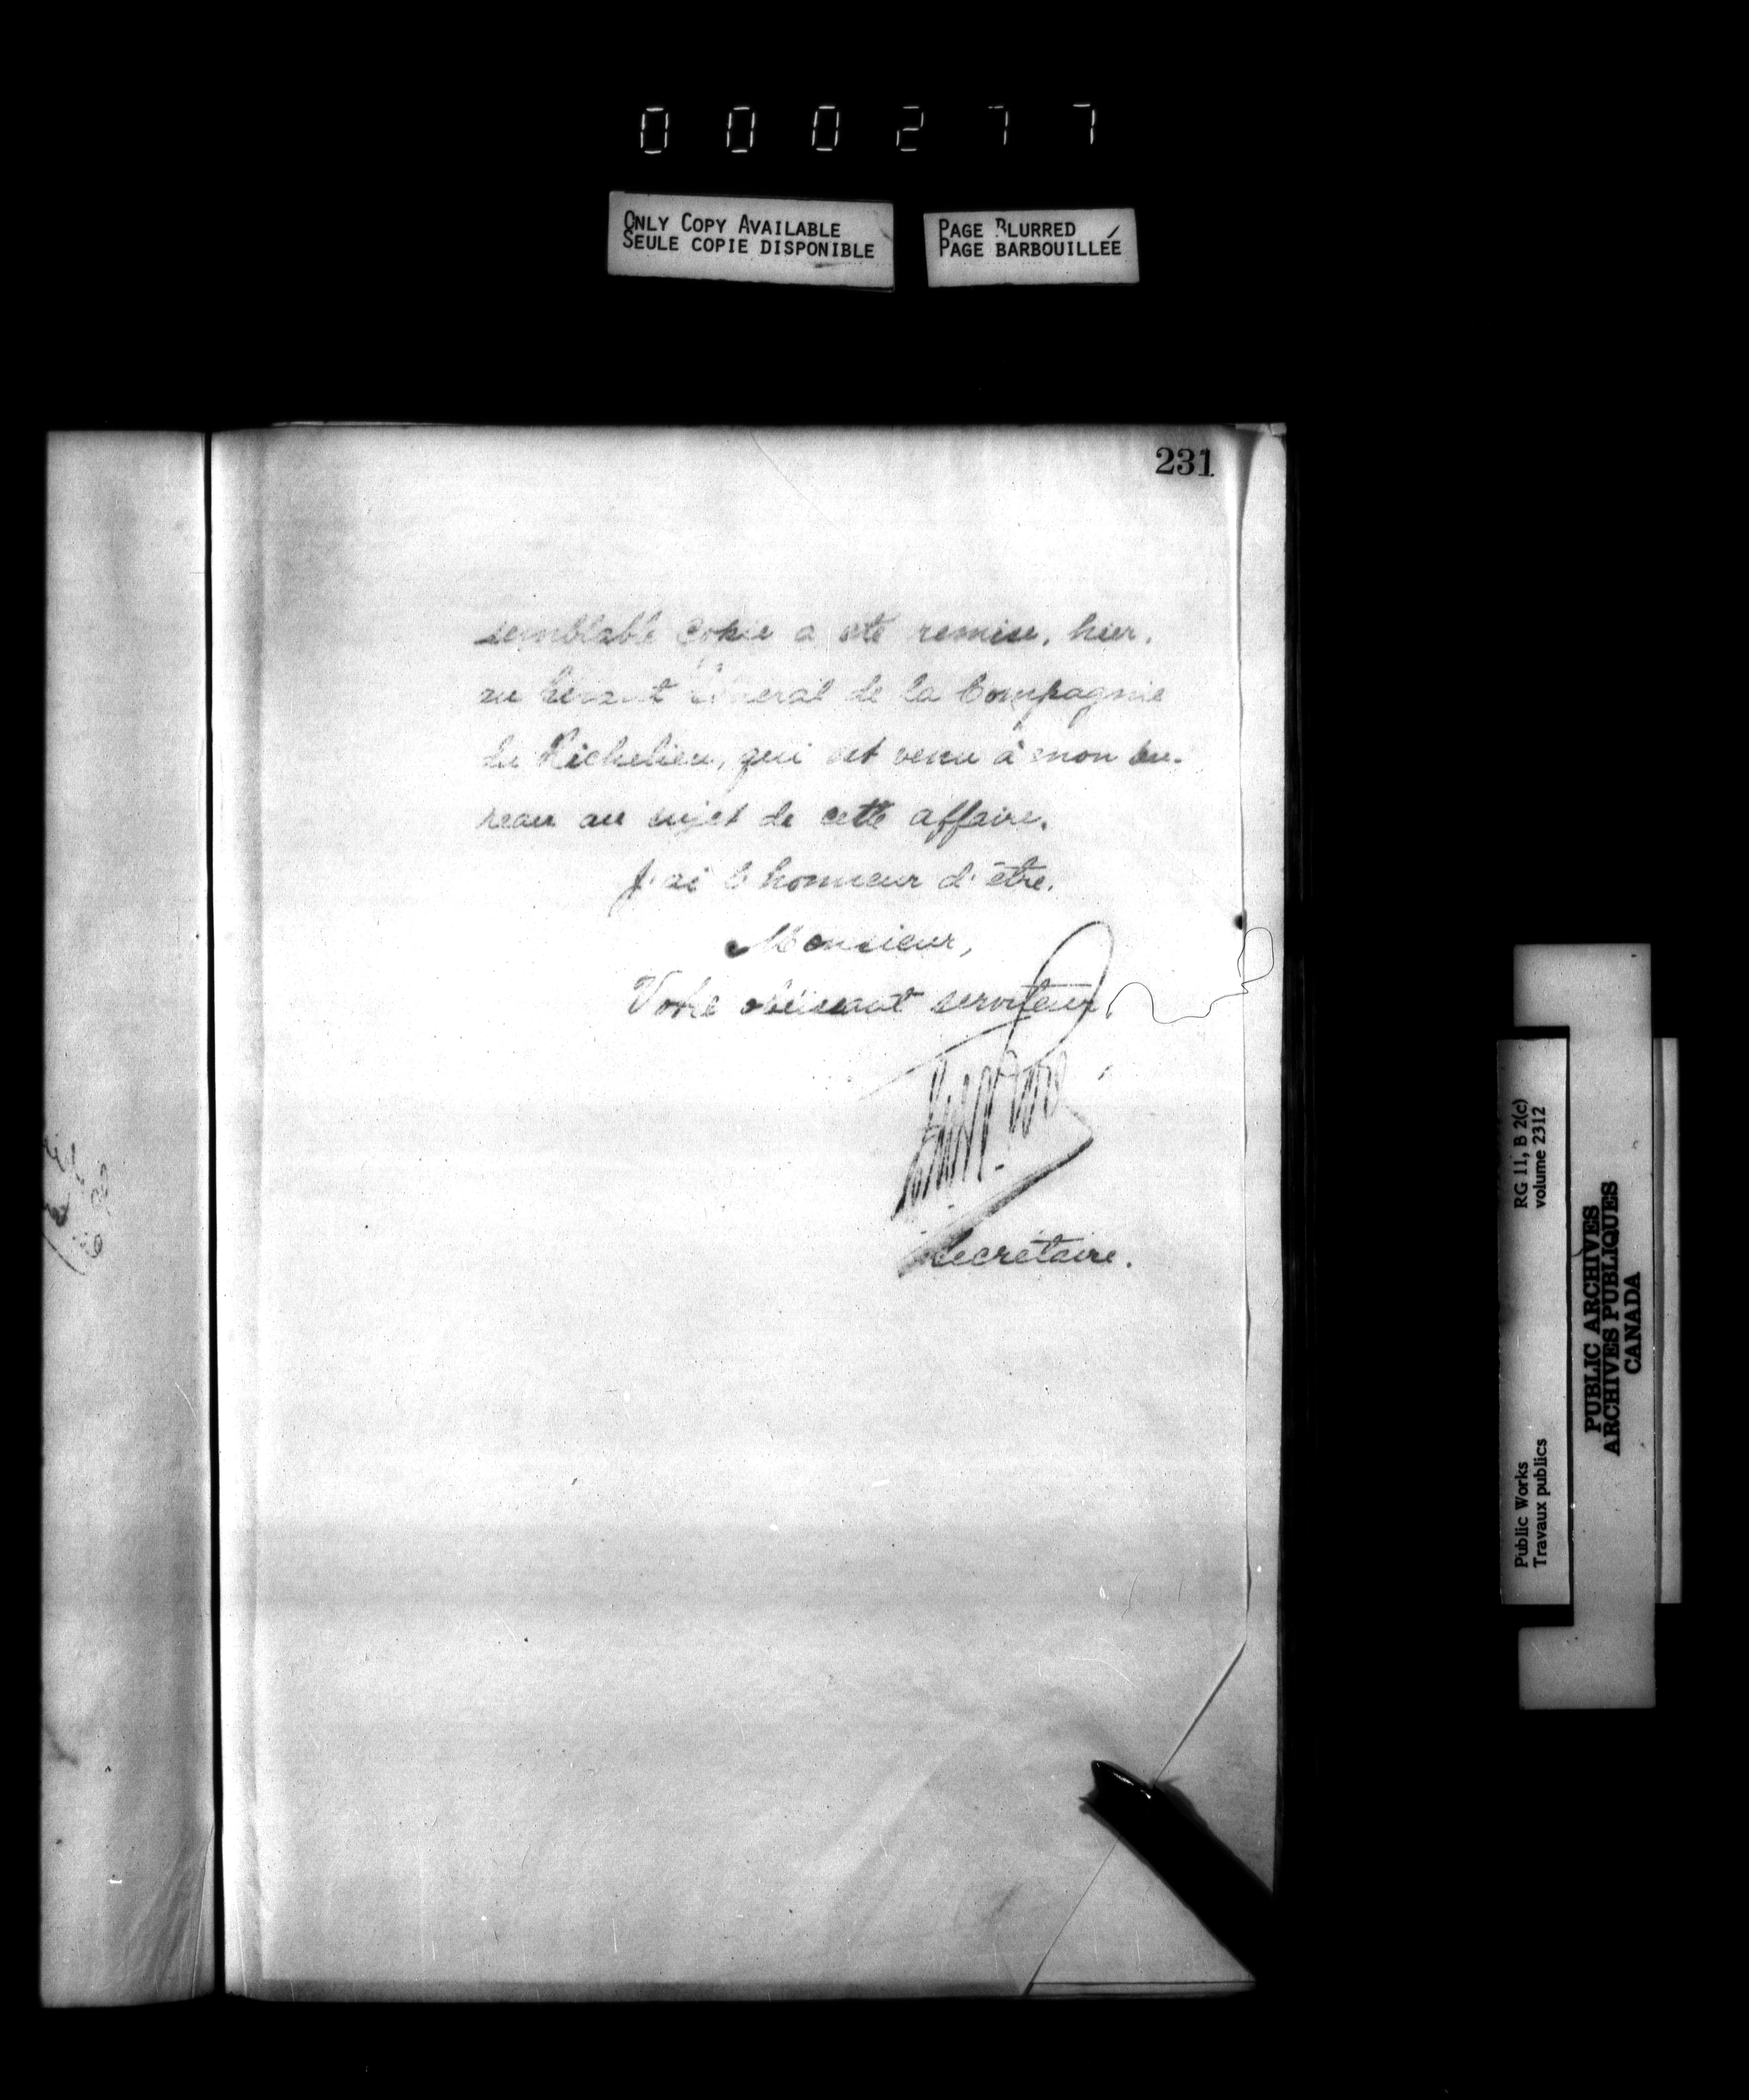 000277
ONLY COPY AVAILABLE
SEULE COPIE DISPONIBLE
PAGE BLURRED
PAGE BARBOUILLÉE
231
semblable copie a été remise, hier,
au Gérant Général de la Compagnie
du Richelieu, qui est venu à mon bu-
reau au sujet de cette affaire.
J'ai l'honneur d'être,
Monsieur,
Votre obéissant serviteur,
Secrétaire.
RG 11, B 2(c)
volume 2312
Public Works
Travaux publics
PUBLIC ARCHIVES
ARCHIVES PUBLIQUES
CANADA